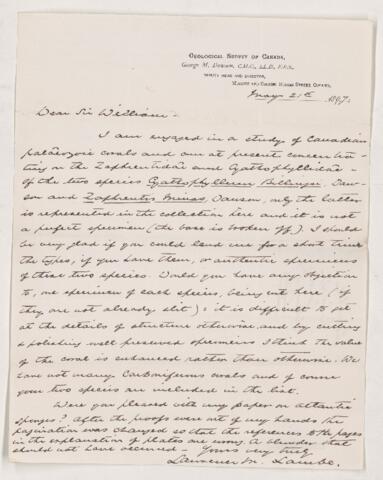 GEOLOGICAL SURVEY OF CANADA,
George M. Dawson, C.M.G., LL.D., F.R.S.
DEPUTY HEAD AND DIRECTOR,
May 21st 1897.
Dear Sir William –
I am engaged in a study of Canadian
palæozoic corals and am at present concentra-
ting on the Zaphrentidæ and Cyathophyllidæ –
Of the two species Cyathophyllum Billingsi, Daw-
son and Zaphrentis Minas, Dawson, only the latter
is represented in the collection here and it is not
a perfect specimen (the base is broken off). I should
be very glad if you could lend me for a short time
the types, if you have them, or authentic specimens
of these two species. Would you have any objection
to, one specimen of each species, being cut here (if
they are not already slit); it is difficult to get
at the details of structure otherwise and by cutting
& polishing well preserved specimens I think the value
of the coral is enhanced rather than otherwise. We
have not many Carboniferous corals and of course
your two species are included in the list.
Were you pleased with my paper on Atlantic
sponges? After the proofs were out of my hands the
pagination was changed so that the references to the pages
in the explanation of plates are wrong. A blunder that
should not have occurred – Yours very truly
Lawrence M. Lambe.